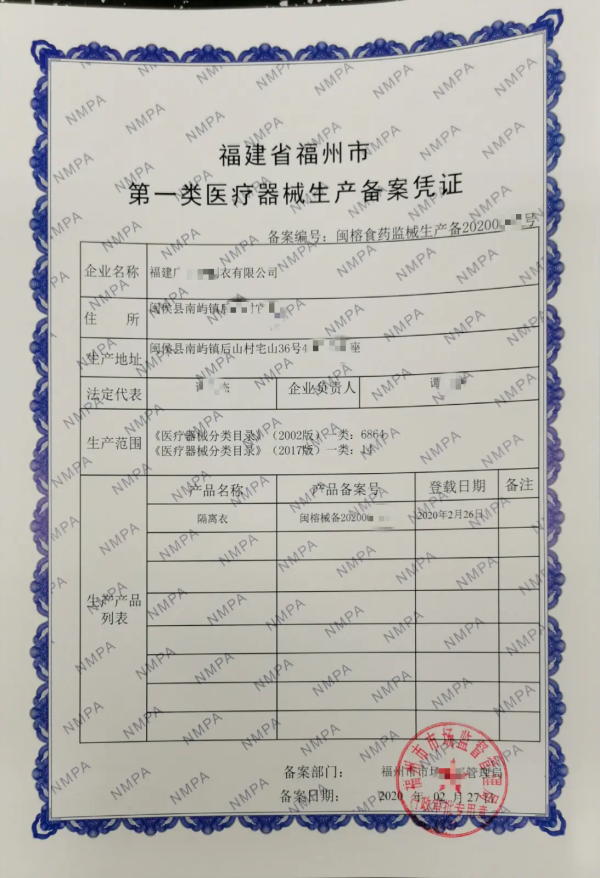 福建省福州市
第一类医疗器械生产备案凭证
备案编号：闽榕食药监械生产备20200 号
企业名称 福建 衣有限公司
住 所 闽侯县南屿镇
生产地址 闽侯县南屿镇后山村宅山36号4 座
法定代表 企业负责人 谭
生产范围 《医疗器械分类目录》（2002版）一类：6864
《医疗器械分类目录》（2017版）一类：14
生产产品列表 产品名称 产品备案号 登载日期 备注
隔离衣 闽榕械备20200 2020年2月26日
备案部门： 福州市市场 管理局
备案日期： 2020 年 02 月 27日
福州市市场监督管理局
行政审批专用章
NMPA